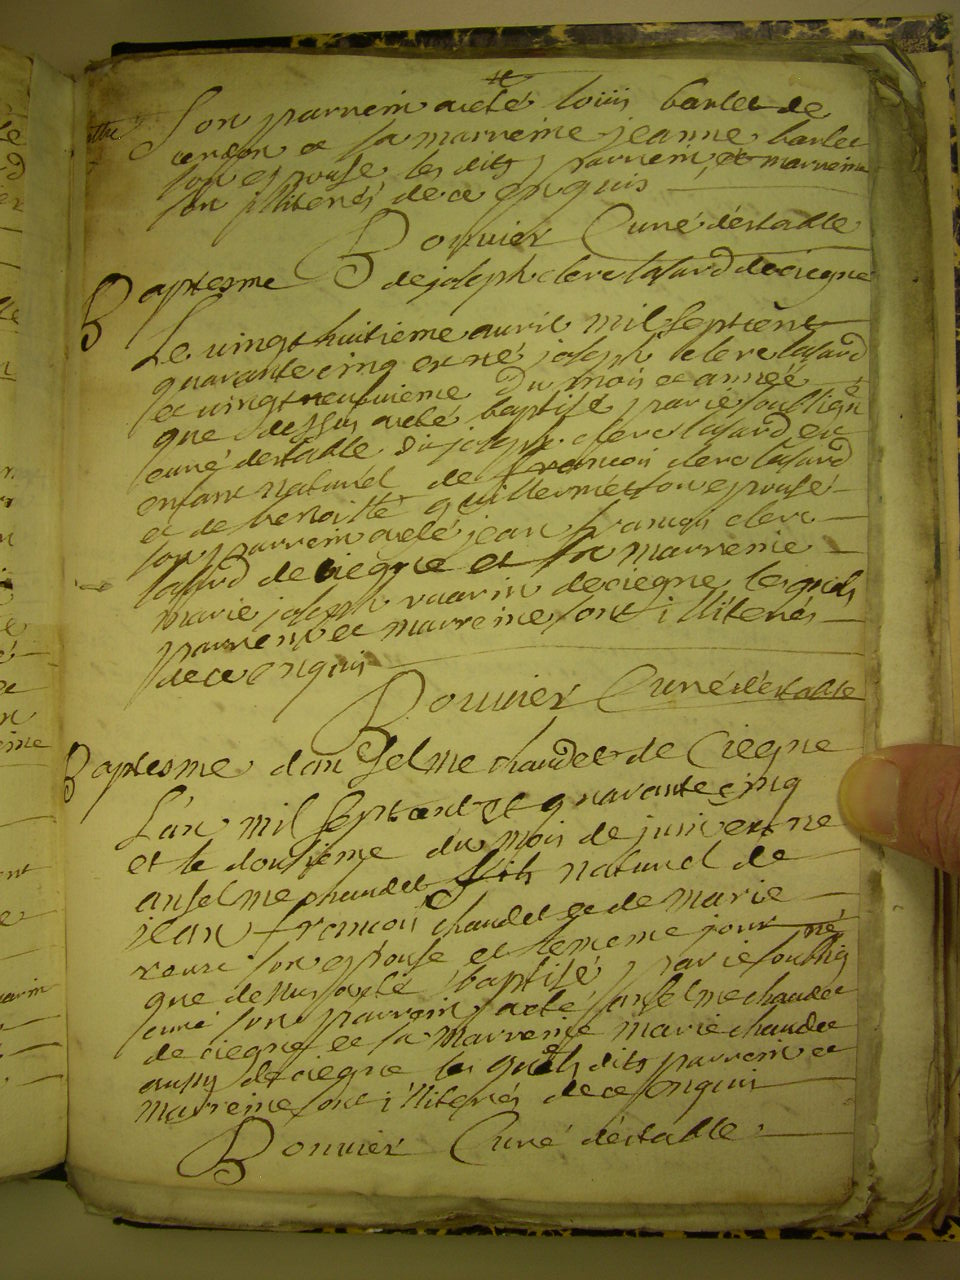 Son parrein a eté loüis barlet de
cerdon et sa marreine jeanne barlet
son epouse les dits parrein, et marreine
son illiterés de ce enquis
Bouvier Curé d'estable
Baptesme de joseph clerc lasard de ciegne
Le vingt huitieme avril mil sept cent
quarante cinq est né joseph clerc lasard
et vingt neuvieme du mois et année
que dessus a eté baptisé par je soussigné
curé destable dit joseph clerc lasard est
enfant naturel de francois clerc lasard
et de benoitte guillermet son epouse
son parrein a eté jean francois clerc
lasard de ciegne et sa marreine
marie joseph vuarin de ciegne lesquels
parrein et marreine sont illiterés
de ce enquis
Bouvier Curé d'estable
Baptesme d'anselme chaudet de Ciegne
L'an mil sept cent et quarante cinq
et le dousieme du mois de juin est né
anselme chaudet fils naturel de
jean francois chaudet et de marie
son epouse et le meme jour
que dessus a eté baptisé par je soussigné
curé son parrein a eté anselme chaudet
de ciegne et sa marreine marie chaudet
aussy de ciegne les quels dits parrein et
marreine sont illiterés de ce enquis
Bouvier Curé d'estable